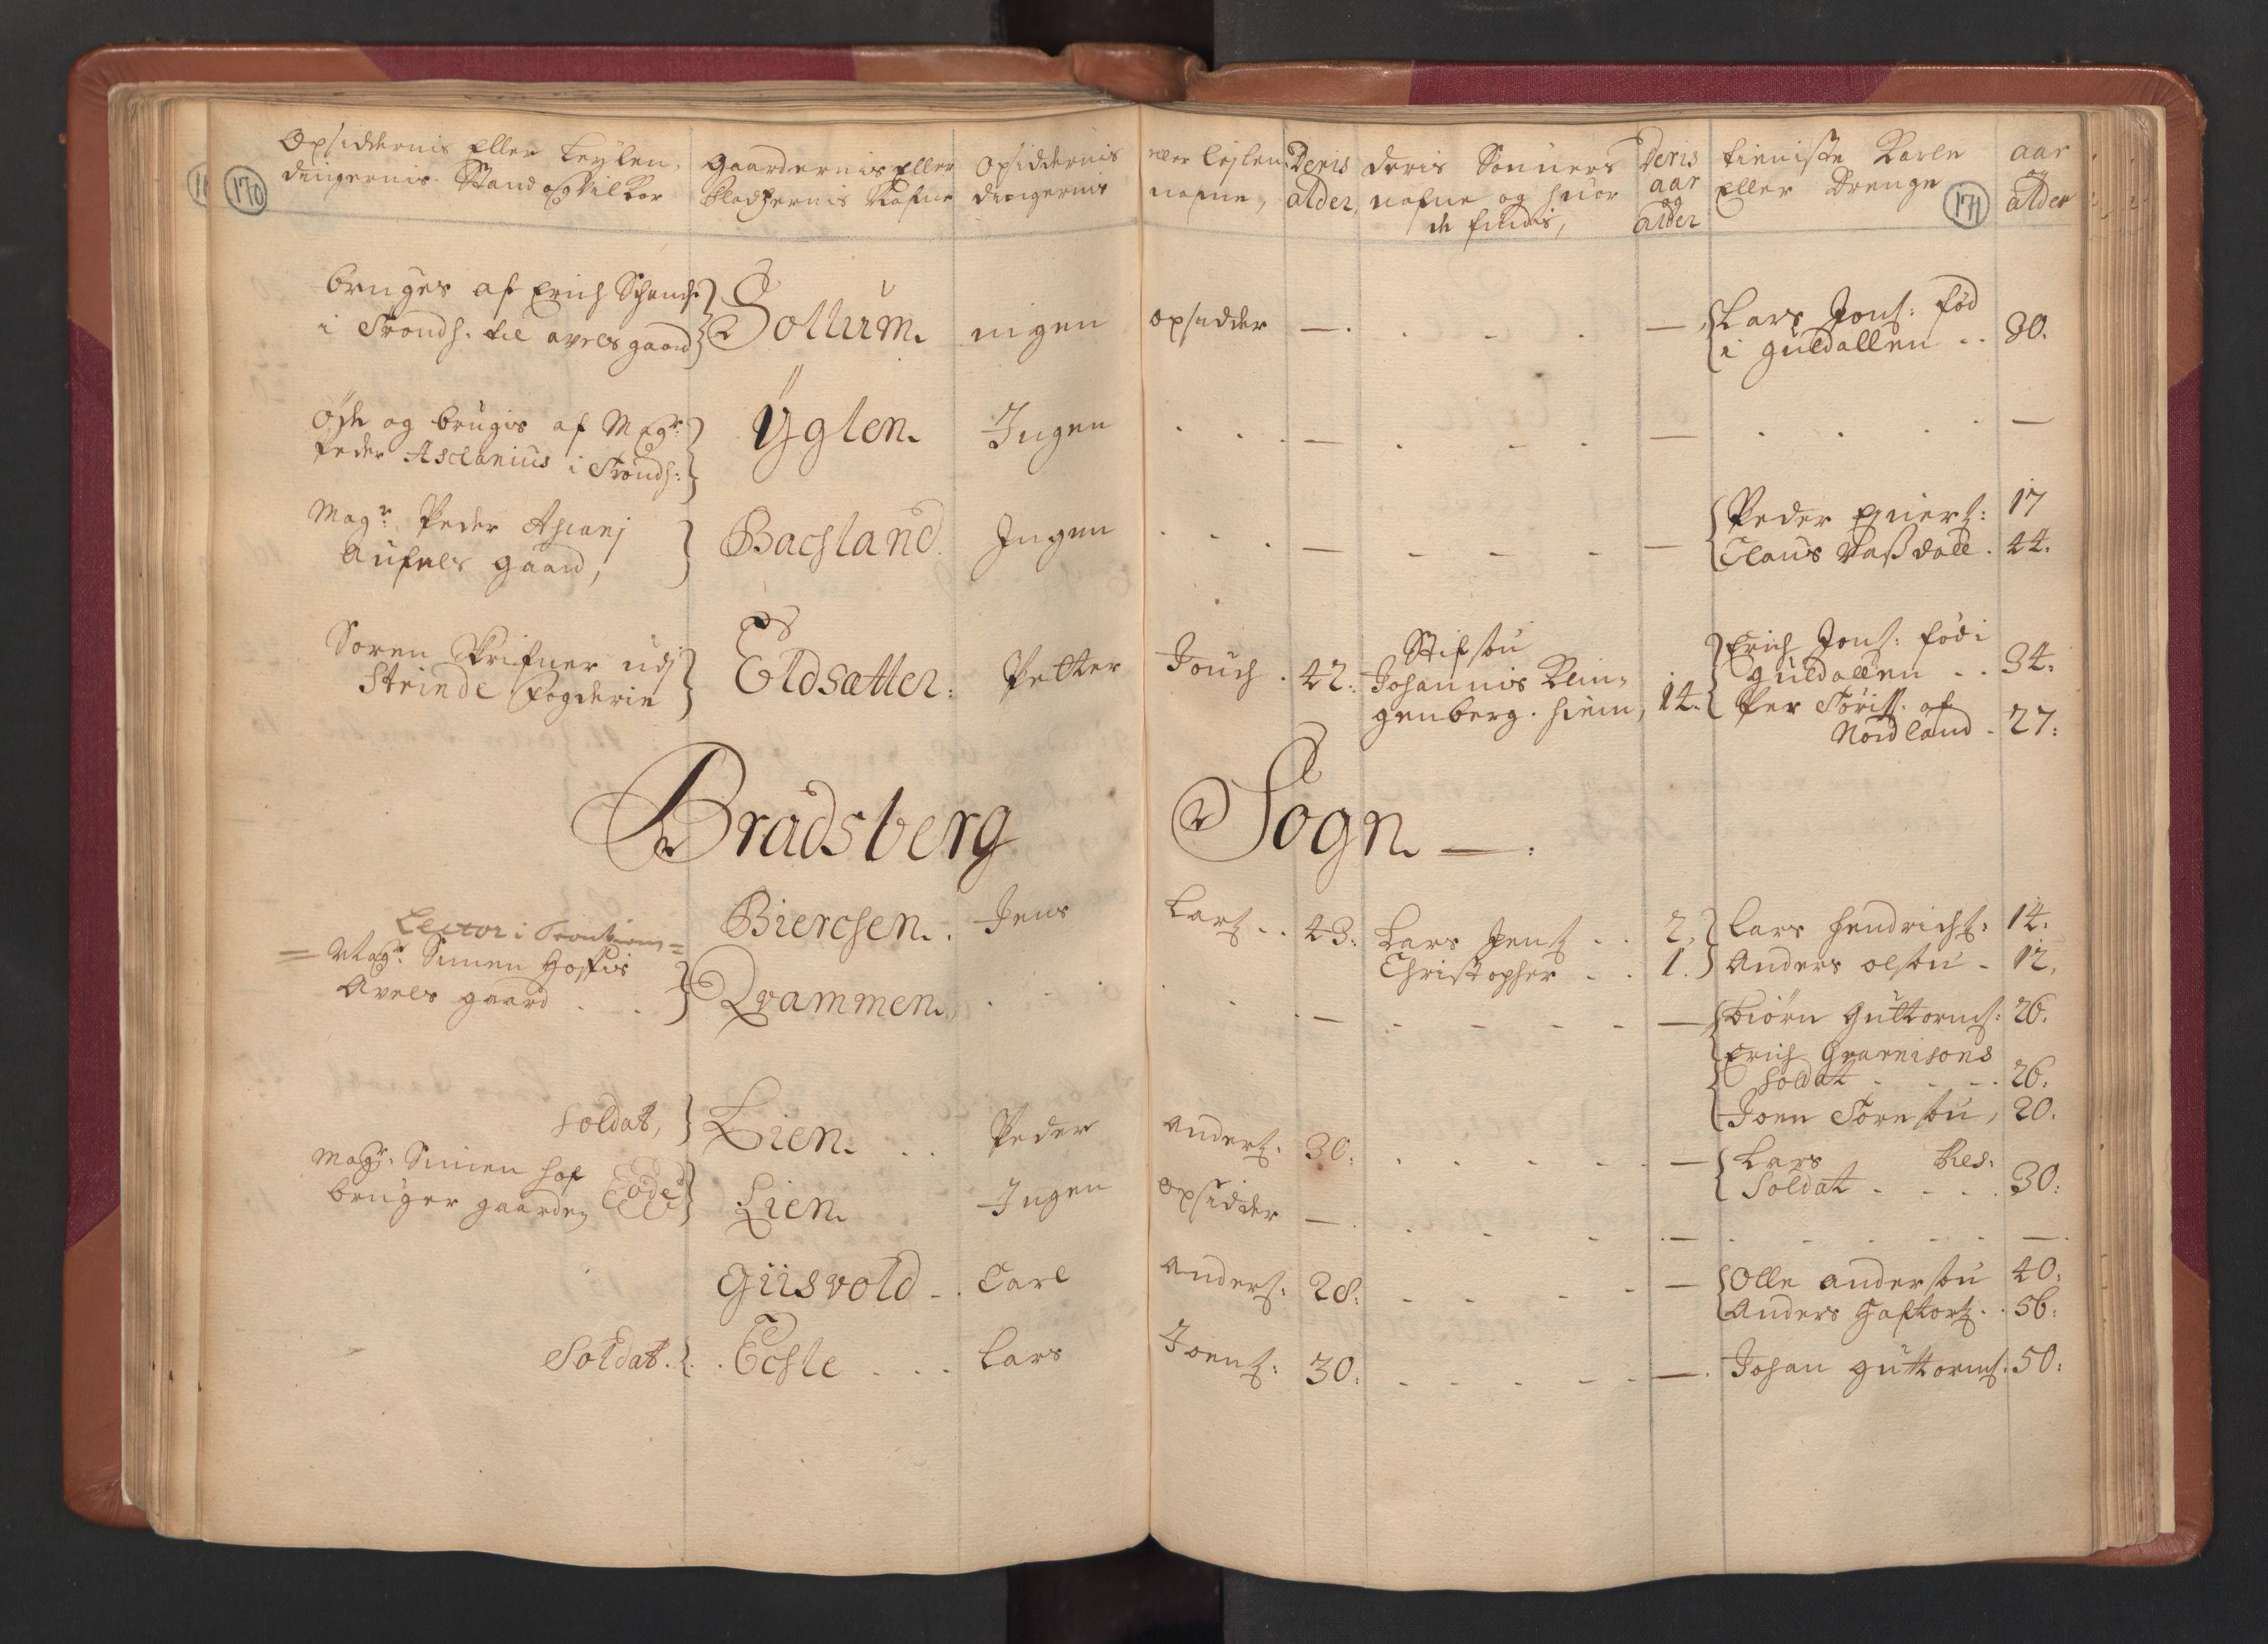 170
Opsiddernis Eller Leylen
dingernis Stand og Vilkor
Gaardernis Eller
Pladzernis Nafne
Opsiddernis
dingernis
eller leylen
nafne,
Deris
alder
deris Sønners
nafne og huor
de findis,
Deris
aar
og
alder
tieniste Karle
eller Drenge
171
aar
og
alder
bruges af Erich Schanche
i Trondh. til avels gaard
Sollum.
ingen
opsidder
Lars Jons: fød
i guldallen
30.
Øde og brugis af Magr:
Peder Asclanius i Trondh:
Ÿglen.
Ingen
Magr. Peder Ascanj
Aufuels gaard,
Bachland.
Ingen
Peder
17
Claus Vassdall.
44.
Soren Skrifuer udj
Strinde fogderie
Eldsætter.
Petter
Jouch.
42.
Stifsøn
Johannis Klin-
genberg. hiem,
14.
Erich Jons: fød i
guldallen
34:
Per af
Nordland.
27:
Bradsberg Sogn.
Lector i Trontiem
Magr. Simen Hoffis
Avels gaard
Bierchen.
Jens
Lars
43:
Lars Jens
2.
Christopher
1.
Lars Hendrichs:
14.
Anders olsøn
12.
Qvammen.
Biørn Guttorms:
26.
Erich Gvarnisons
soldat
26:
Joen Toresøn,
20.
Soldat,
Lien.
Peder
Anders.
30:
Lars Res:
Soldat
30:
Magr. Simen Hof
bruger gaarden Øde
Lien.
Ingen
opsidder
Giisvold
Carl
Anders:
28:
Olle Andersøn
40:
Anders Haftors
56:
Soldat.
Echle
Lars
Joens:
30:
Johan Guttorms:
50: